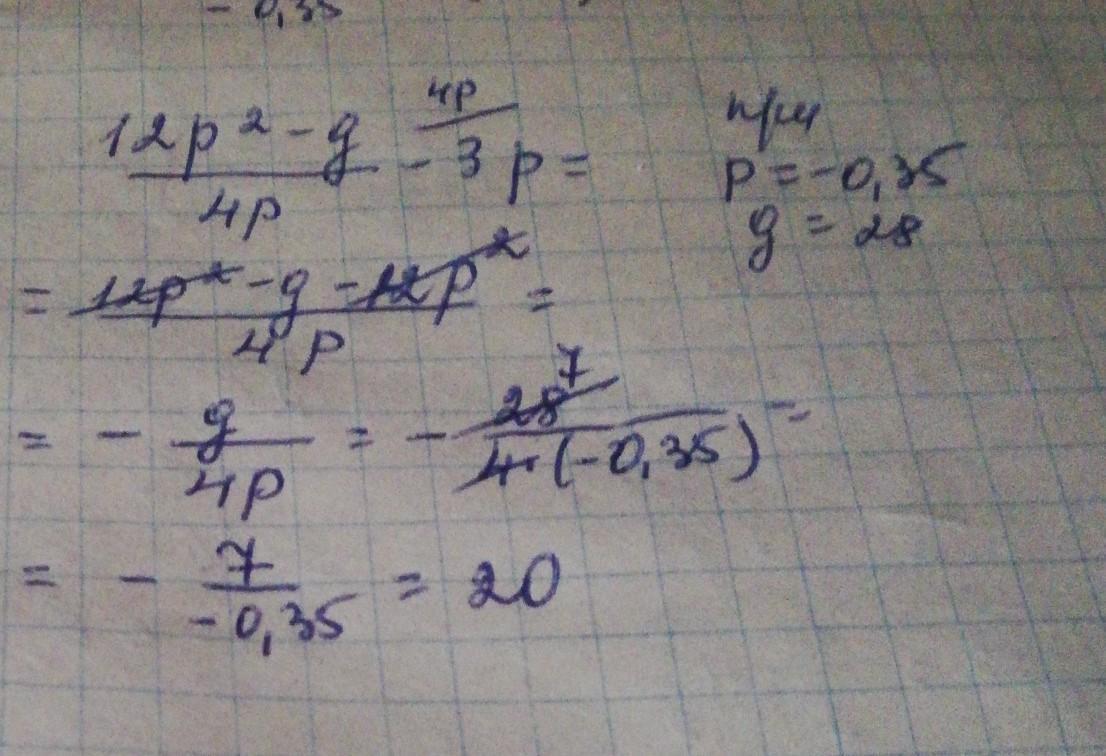 - 0,35
12p² - g / 4p - 3p = 4p при
p = -0,35
g = 28
= 12p² - g - 12p² / 4p =
= - g / 4p = - 28 7 / 4·(-0,35) =
= - 7 / -0,35 = 20